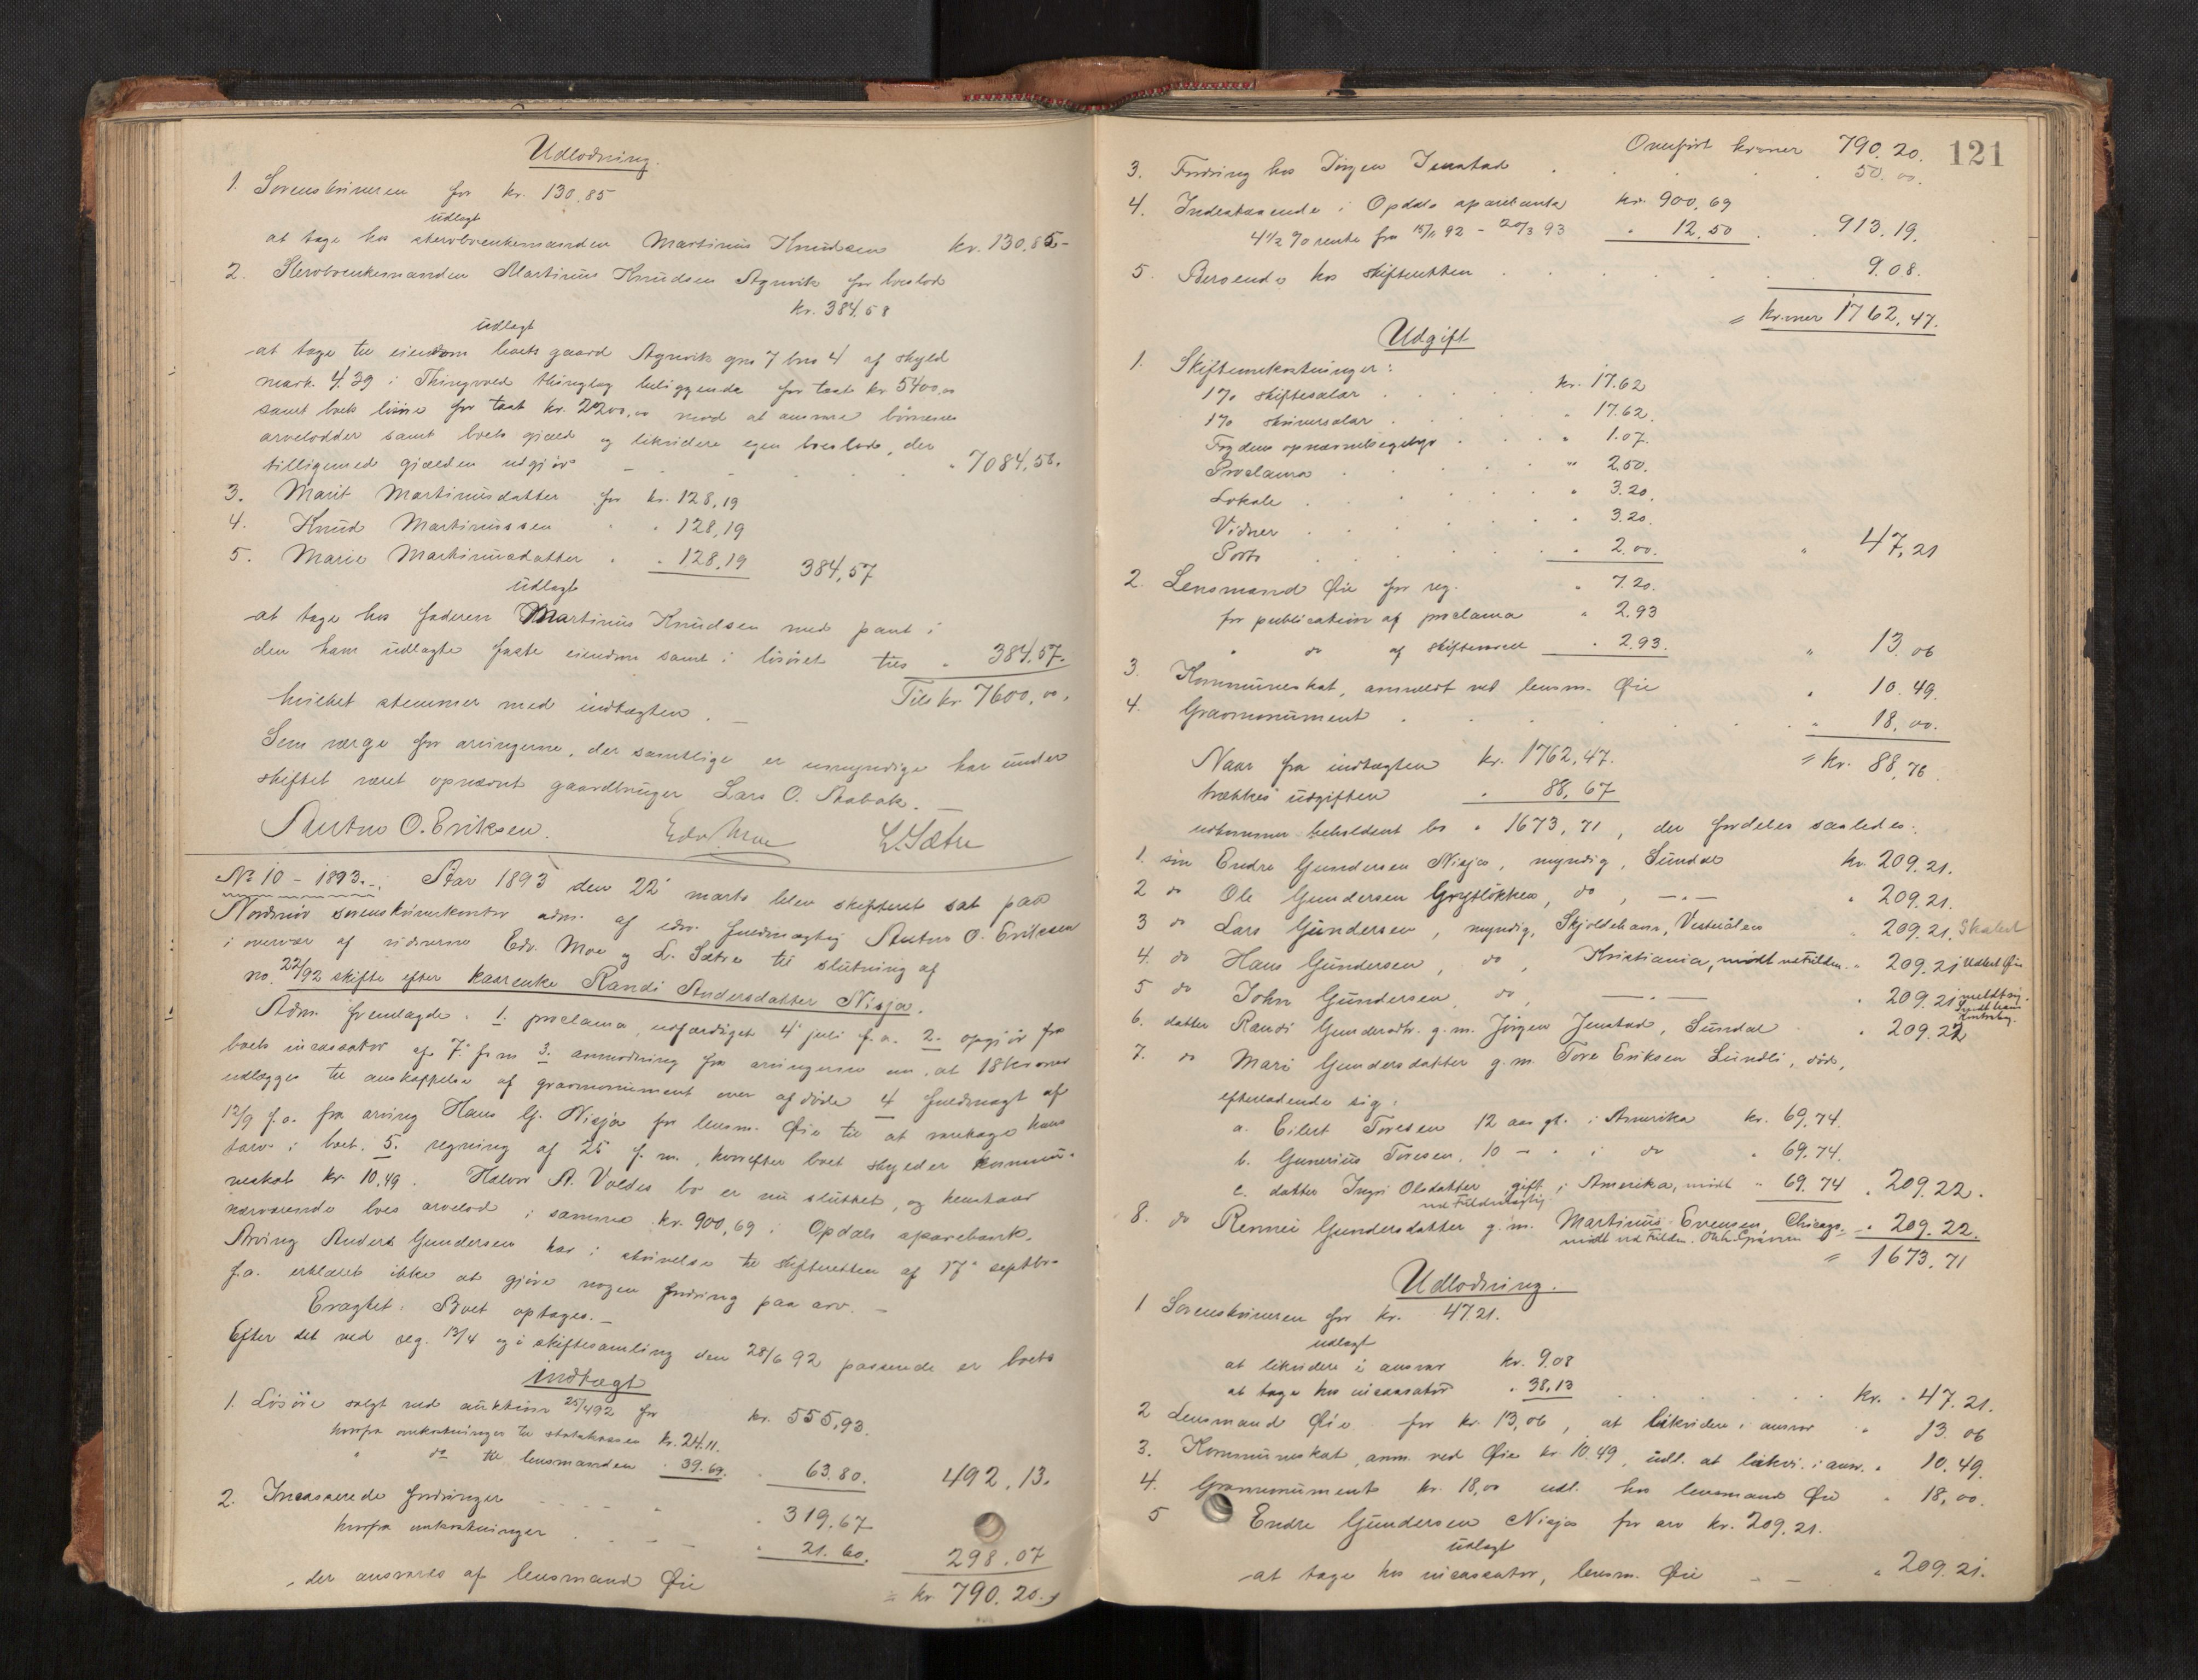 Udlodning.
1. Sorenskriveren for kr. 130,85
udlagt
at tage hos sterbbenkemanden Martinus Knudsen kr. 130,85-
2. Sterbbenkemanden Martinus Knudsen Agnvik for boslod
kr. 384,58
udlagt
at tage til eiendom boets gaard Agnvik gno 7 bno 4 af skyld
mark. 4.39 i Thingvold thinglag beliggende for taxt kr 5400,00
samt boets løsøre for taxt kr. 2200,00 mod at ansvare børnenes
arvelodder samt boets gjæld og likvidere egen boeslod, der
tilligemed gjælden udgjør " 7084,58.
3. Marit Martinusdatter for kr. 128,19
4. Knud Martinussen " " 128,19
5. Marie Martinusdatter " " 128,19 384,57
udlagt
at tage hos faderen Martinus Knudsen med pant i
den ham udlagte faste eiendom samt i løsøret tres " 384,57.
Tils kr 7600,00.
hvilket stemmer med indtægten.
Som værge for arvingerne, der samtlige er umyndige har under
skiftet været opnævnt gaardbruger Lars O. Stabak.
Anton O. Eriksen. Edv. Moe L. Sætre
No 10 - 1893. Aar 1893 den 22' marts blev skifteret sat paa
Nordmør sorenskriverkontor adm. af edsv. fuldmægtig Anton O. Eriksen
i overvær af vidnerne Edv. Moe og L. Sætre til slutning af
no. 22/92 skifte efter kaarenke Randi Andersdatter Nisja.
Adm. fremlagde: 1. proclama, udfærdiget 4' juli f.a. 2. opgjør fra
boets incassator af 7' f.m 3. anmodning fra arvingerne om, at 18 kroner
udlægges til anskaffelse af gravmonument over afdøde 4 fuldmagt af
12/9 f.a. fra arving Hans G. Nisja for lensm. Øie til at varetage hans
tarv i boet. 5. regning af 25 f.m., hvorefter boet skylder kommu-
neskat kr 10.49. Halvor A. Voldes bo er nu sluttet, og henstaar
nærværende boes arvelod i samme kr. 900,69 i Opdals sparebank.
Arving Anders Gundersen har i skrivelse til skifteretten af 17' septbr.
f.a. erklæret ikke at gjøre nogen fordring paa arv.
Eragtet: Boet optages.
Efter det ved reg. 13/4 og i skiftesamling den 28/6 92 passerede er boets
indtægt
1. Løsøre solgt ved auktion 25/4 92 for kr. 555,93.
hvorfra omkostninger til statskassen kr. 24.11.
" do til lensmanden " 39.69. " 63.80. 492.13.
2. Incasserede fordringer " 319.67
hvorfra omkostninger " 21.60. 298.07
der ansvares af lensmand Øie = kr 790.20.
121
Overført kroner 790.20.
3. Fordring hos Jørgen Jenstad 50.00.
4. Indestaaende i Opdals sparebank kr. 900,69
4 1/2 % rente fra 15/1 92 - 20/3 93 " 12.50 913.19.
5. Beroende hos skifteretten 9.08.
= kroner 1762,47.
Udgift
1. Skifteomkostninger:
1% skiftesalar kr. 17.62
1% skriversalar " 17.62.
Fogdens opnævnelsesgebyr " 1.07.
Proclama " 2.50.
Lokale " 3.20.
Vidner " 3.20.
Porto " 2.00. " 47,21
2. Lensmand Øie for reg. " 7.20.
for publication af proclama " 2.93
" do af skifteværd " 2.93. " 13.06
3. Kommuneskat, anmeldt ved lensm. Øie " 10.49.
4. Gravmonument " 18,00.
= kr. 88,76.
Naar fra indtægten kr. 1762,47.
trækkes udgiften " 88,67
udkommer beholdent bo " 1673,71, der fordeles saaledes:
1. søn Endre Gundersen Nisja, myndig, Sundal kr. 209.21.
2 do Ole Gundersen Grytløkken, do, —"— " 209.21.
3 do Lars Gundersen, myndig, Skjoldehavn, Vesteraalen " 209.21. Skatet
4. do Hans Gundersen, do, Kristiania, mødt ved Fuldm. " 209.21 Udlert Øie
5 do John Gundersen, do, —"— " 209.21
6. datter Randi Gundersdtr. g.m. Jørgen Jenstad, Sundal " 209.22
7. do Mari Gundersdatter g.m. Tore Eriksen Lundli, død,
efterladende sig:
a. Eilert Toresen 12 aar gl. i Amerika kr. 69,74.
b. Gunerius Toresen, 10 - " i do " 69.74.
c. datter Ingri Olsdatter gift i Amerika, mødt " 69.74 " 209.22.
ved Fuldmægtig
8. do Rennei Gundersdatter g.m. Martinus Evensen, Chicago " 209.22.
mødt ved Fuldm.
= 1673.71
Udlodning.
1 Sorenskriveren for kr. 47.21.
udlagt
at likvidere i ansvar kr. 9.08
at tage hos incassator " 38,13 kr. " 47.21.
2 Lensmand Øie for kr. 13,06, at likvidere i ansvar " 13.06
3. Kommuneskat anm. ved Øie kr 10.49, udl. at likvi. i answ. " 10.49.
4. Gravmonument kr. 18,00 udl. hos lensmand Øie " 18,00.
5 Endre Gundersen Nisja for arv kr. 209.21.
udlagt
at tage hos incassator, lensm. Øie " 209.21.